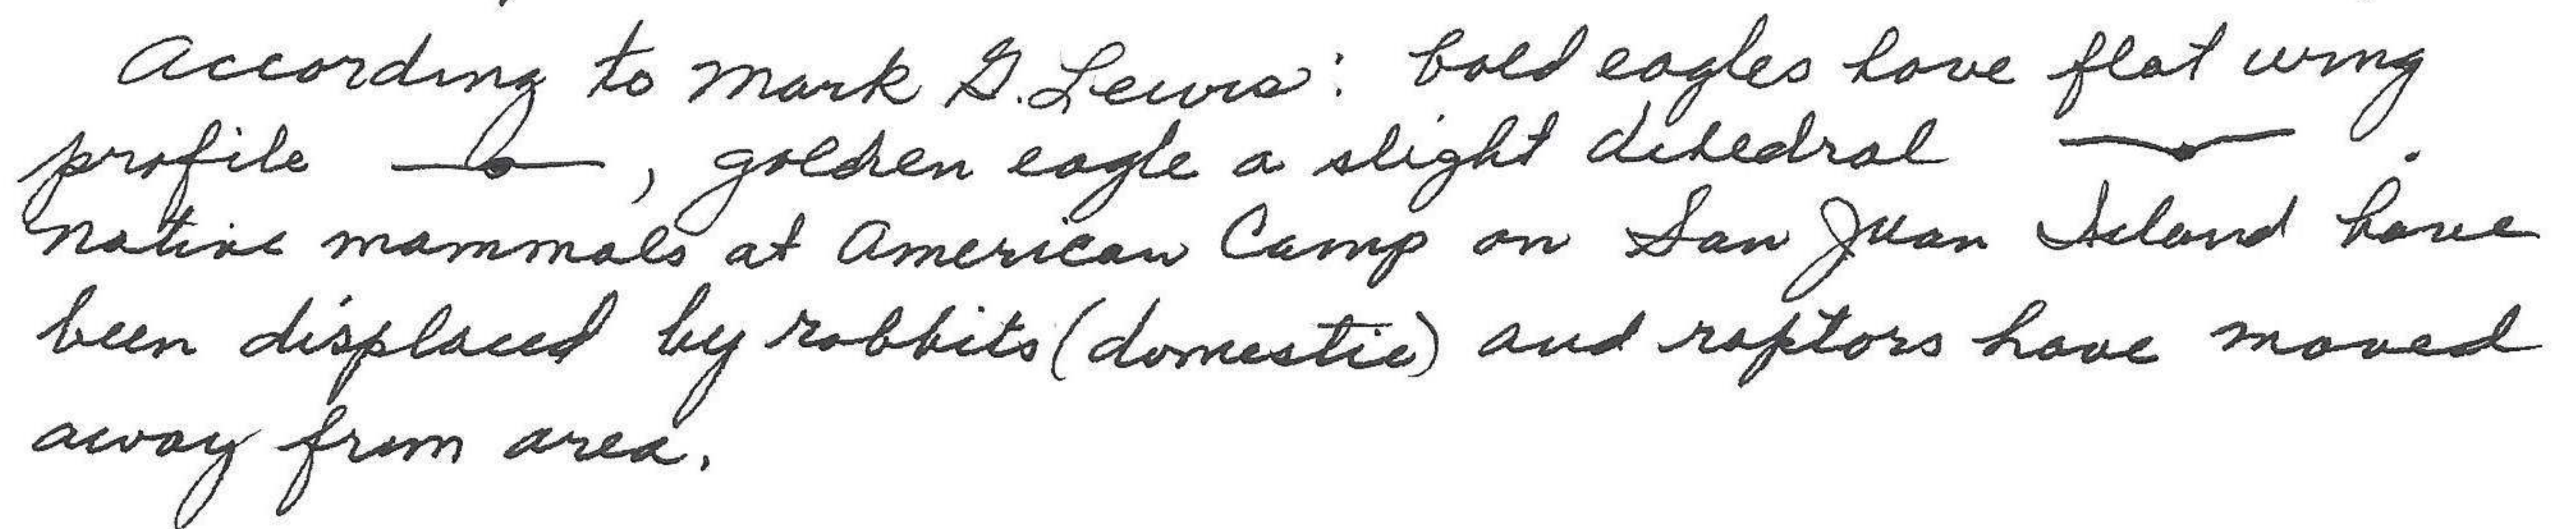 According to Mark G. Lewis: bald eagles have flat wing
profile , golden eagle a slight dihedral .
Native mammals at American Camp on San Juan Island have
been displaced by rabbits (domestic) and raptors have moved
away from area.